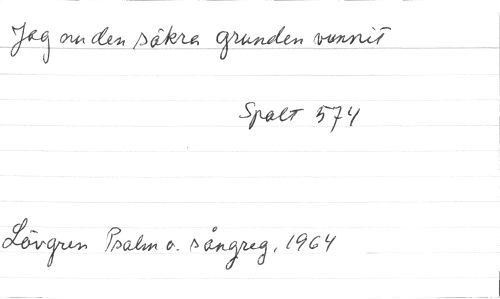 Jag nu den säkra grunden vunnit
Spalt 574
Lövgren Psalm o. sångreg, 1964